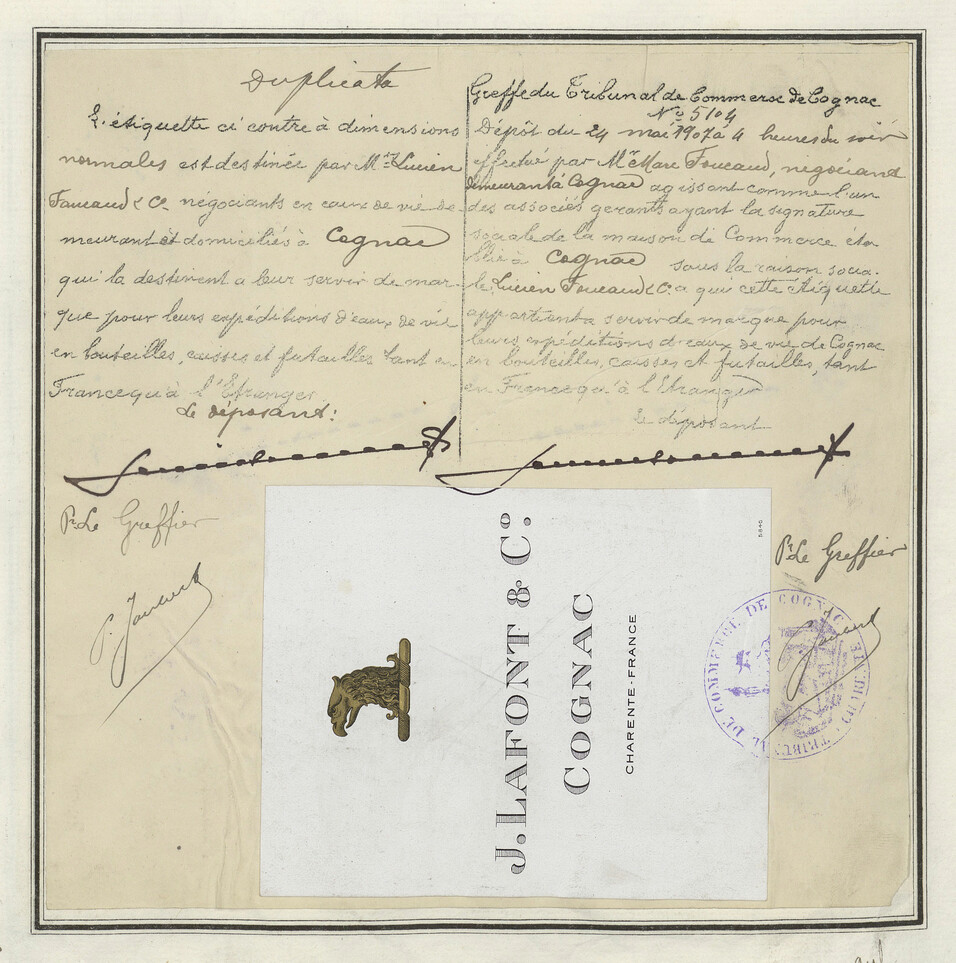 Duplicata
L'étiquette ci contre à dimensions
normales est destinée par Mrs Lucien
Foucaud & Co négociants en eaux de vie de-
meurant et domiciliés à Cognac
qui la destinent a leur servir de mar-
que pour leurs expéditions d'eaux de vie
en bouteilles, caisses et futailles tant en
France qu'à l'Etranger
Le déposant:
Pr Le Greffier
Greffe du Tribunal de Commerce de Cognac
No 5104
Dépôt du 24 mai 1907 à 4 heures du soir
effectué par Mr Marc Foucaud, négociant
demeurant à Cognac agissant comme l'un
des associés gerants ayant la signature
sociale de la maison de Commerce éta-
blie à Cognac sous la raison socia-
le Lucien Foucaud & Co a qui cette étiquette
appartient a servir de marque pour
leurs expéditions d'eaux de vie de Cognac
en bouteilles, caisses et futailles, tant
en France qu'à l'Etranger
Le déposant
Pr Le Greffier
J. LAFONT & Co.
COGNAC
CHARENTE-FRANCE
TRIBUNAL DE COMMERCE DE COGNAC